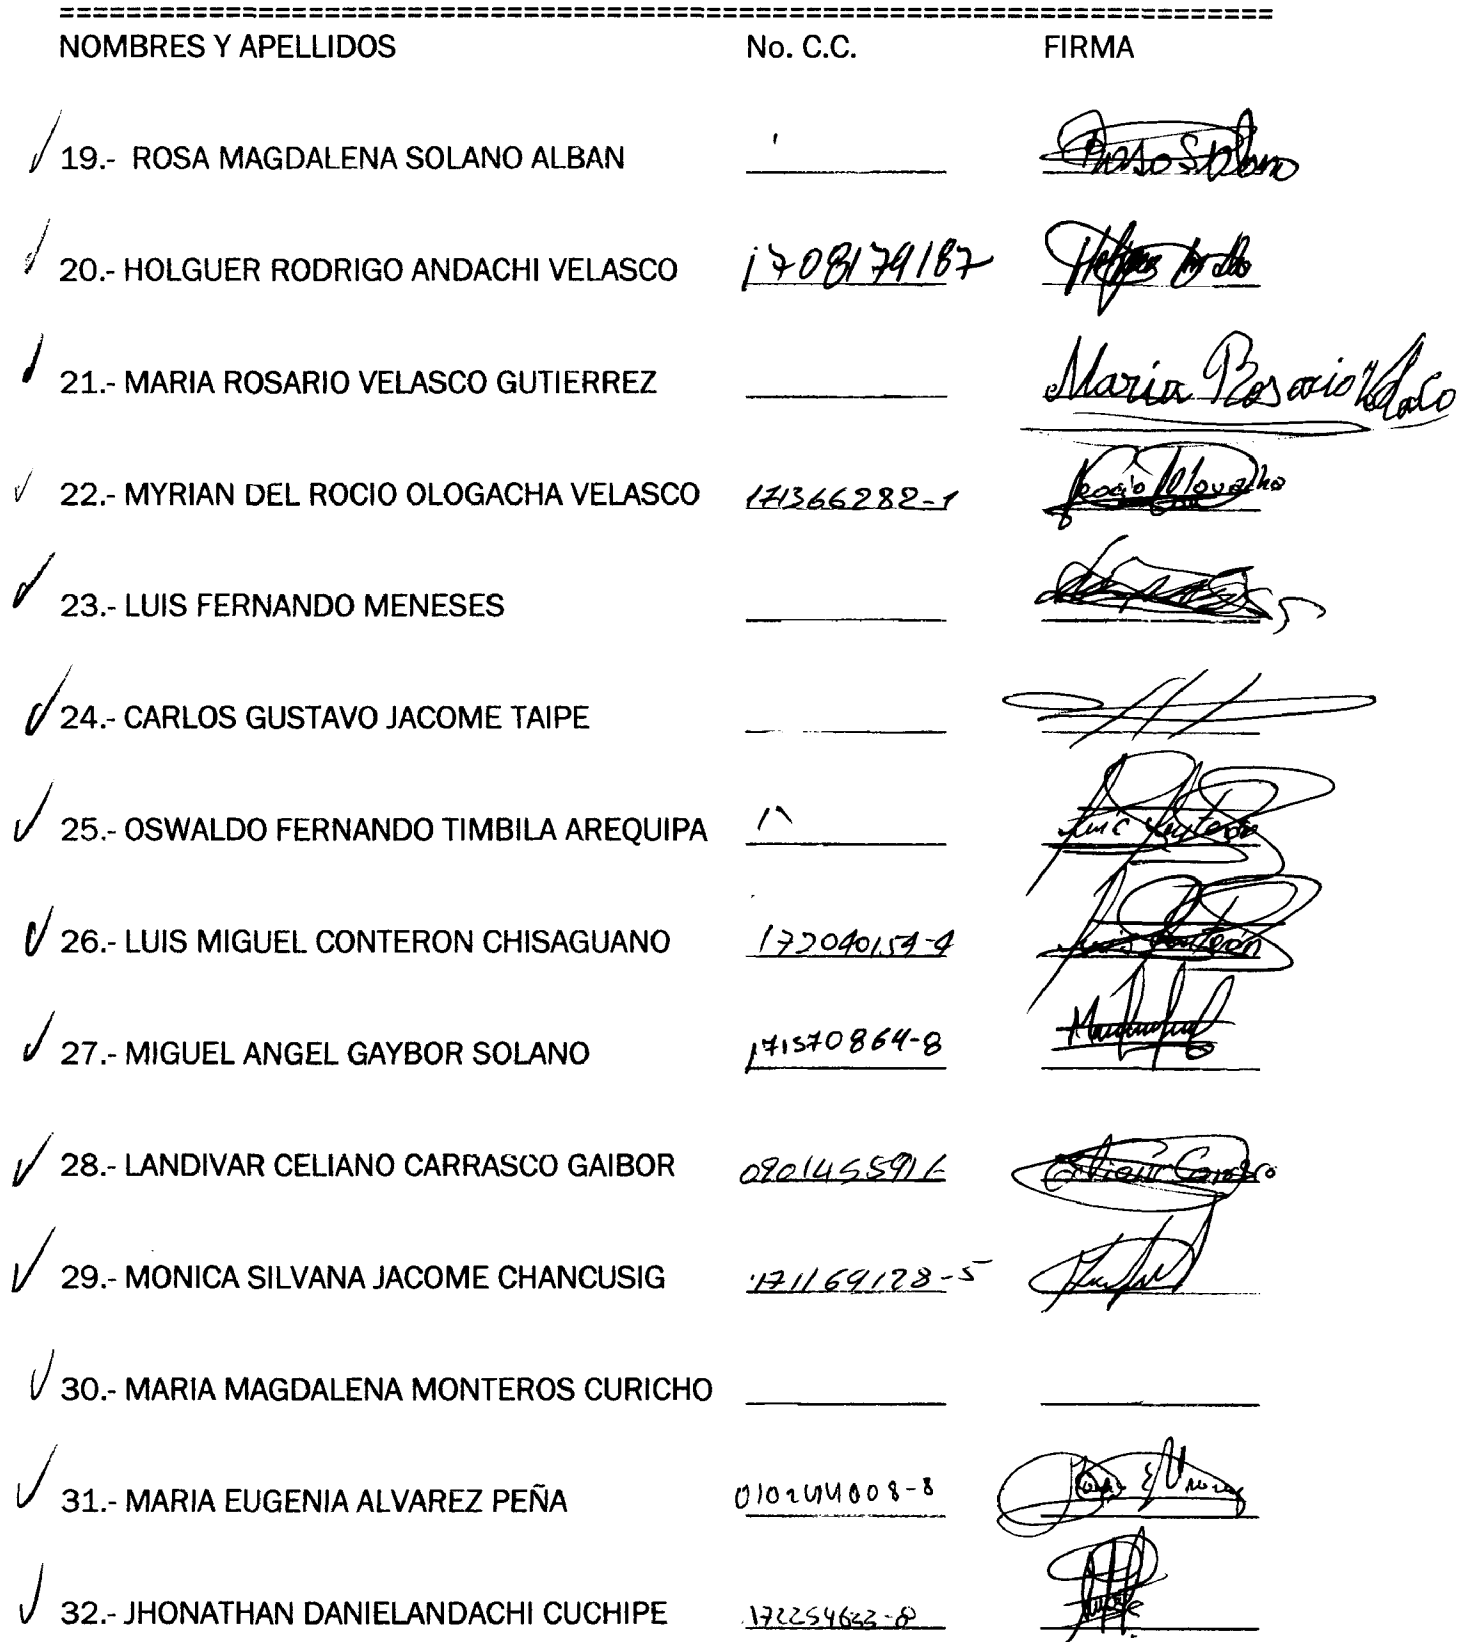 NOMBRES Y APELLIDOS No. C.C. FIRMA
19.- ROSA MAGDALENA SOLANO ALBAN Rosa Solano
20.- HOLGUER RODRIGO ANDACHI VELASCO 1708179187
21.- MARIA ROSARIO VELASCO GUTIERREZ Maria Rosario Velasco
22.- MYRIAN DEL ROCIO OLOGACHA VELASCO 171366282-1 Rocio Ologacha
23.- LUIS FERNANDO MENESES
24.- CARLOS GUSTAVO JACOME TAIPE
25.- OSWALDO FERNANDO TIMBILA AREQUIPA
26.- LUIS MIGUEL CONTERON CHISAGUANO 172040154-4 Luis Conteron
27.- MIGUEL ANGEL GAYBOR SOLANO 171570864-8
28.- LANDIVAR CELIANO CARRASCO GAIBOR Celiano Carrasco
29.- MONICA SILVANA JACOME CHANCUSIG 171169128-5
30.- MARIA MAGDALENA MONTEROS CURICHO
31.- MARIA EUGENIA ALVAREZ PEÑA 010244008-8
32.- JHONATHAN DANIELANDACHI CUCHIPE